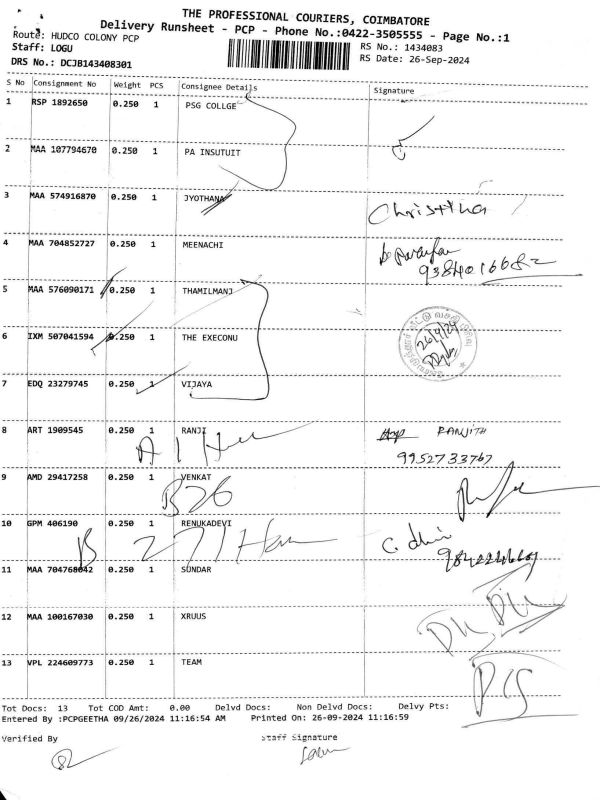 THE PROFESSIONAL COURIERS, COIMBATORE
Delivery Runsheet - PCP - Phone No.:0422-3505555 - Page No.:1
Route: HUDCO COLONY PCP
RS No.: 1434083
Staff: LOGU
RS Date: 26-Sep-2024
DRS No.: DCJB143408301
S No Consignment No Weight PCS Consignee Details Signature
1 RSP 1892650 0.250 1 PSG COLLGE
2 MAA 107794670 0.250 1 PA INSUTUIT
3 MAA 574916870 0.250 1 JYOTHANA Christina
4 MAA 704852727 0.250 1 MEENACHI
9384016682
5 MAA 576090171 0.250 1 THAMILMANJ
26/9/24
6 IXM 507041594 0.250 1 THE EXECONU
7 EDQ 23279745 0.250 1 VIJAYA
8 ART 1909545 0.250 1 RANJI RANJITH
9952733767
9 AMD 29417258 0.250 1 VENKAT
B26
10 GPM 406190 0.250 1 RENUKADEVI
B 271
11 MAA 704768042 0.250 1 SUNDAR
12 MAA 100167030 0.250 1 XRUUS
13 VPL 224609773 0.250 1 TEAM
Tot Docs: 13 Tot COD Amt: 0.00 Delvd Docs: Non Delvd Docs: Delvy Pts:
Entered By :PCPGEETHA 09/26/2024 11:16:54 AM Printed On: 26-09-2024 11:16:59
Verified By Staff Signature